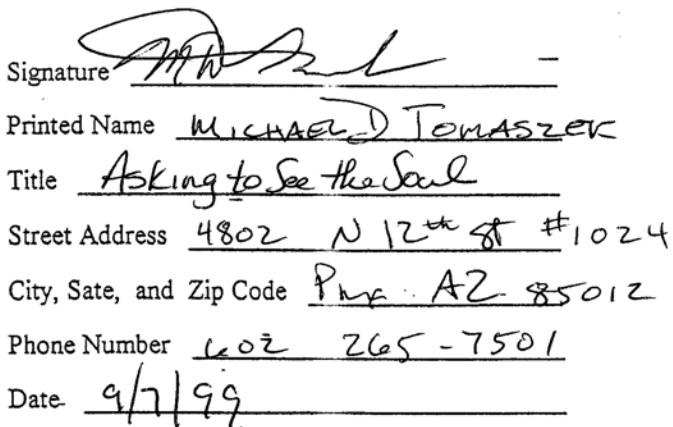 Signature
Printed Name MICHAEL D TOMASZEK
Title Asking to See the Soul
Street Address 4802 N 12th St #1024
City, Sate, and Zip Code Phx AZ 85012
Phone Number 602 265-7501
Date 9/7/99